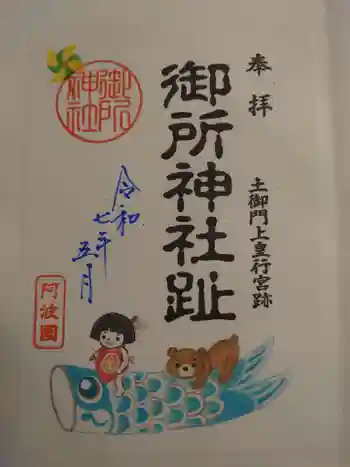 奉拝
土御門上皇行宮跡
御所神社趾
御所
神社
令和
七年
五月
阿波國